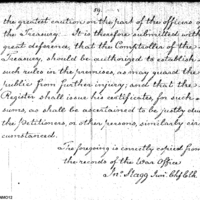 89.
the greatest caution on the part of the officers of
the Treasury. It is therefore submitted with
great deference, that the Comptroller of the
Treasury, should be authorized to establish
such rules in the premises, as may guard the
public from further injury; and that the
Register shall issue his certificates, for such
sums, as shall be ascertained to be justly due
the Petitioners, or other persons, similarly cir
cumstanced.
The foregoing is correctly copied from
the records of the War Office
Jno. Stagg Junr. Chf Clk